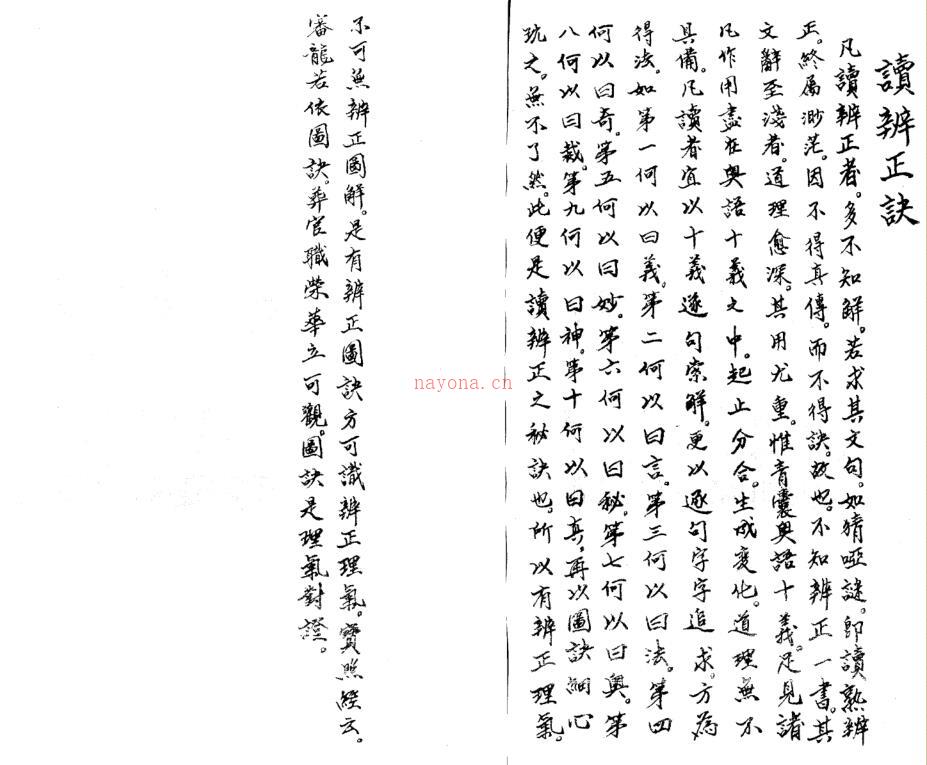 讀辨正訣
凡讀辨正者。多不知解。若求其文句。如猜啞謎。即讀熟辨
正。終屬渺茫。因不得真傳。而不得訣。故也。不知辨正一書。其
文辭至淺者。道理愈深。其用尤重。惟青囊奧語十義。足見諸
凡作用盡在奧語十義之中。起止分合。生成變化。道理無不
具備。凡讀者宜以十義逐句索解。更以逐句字字追求。方為
得法。如第一何以曰義。第二何以曰言。第三何以曰法。第四
何以曰奇。第五何以曰妙。第六何以曰秘。第七何以曰奧。第
八何以曰裁。第九何以曰神。第十何以曰真。再以圖訣細心
玩之。無不了然。此便是讀辨正之秘訣也。所以有辨正理氣。
不可無辨正圖解。是有辨正圖訣方可識辨正理氣。寶照經云。
審龍若依圖訣。葬官職榮華立可觀。圖訣是理氣對證。
nayona.cn